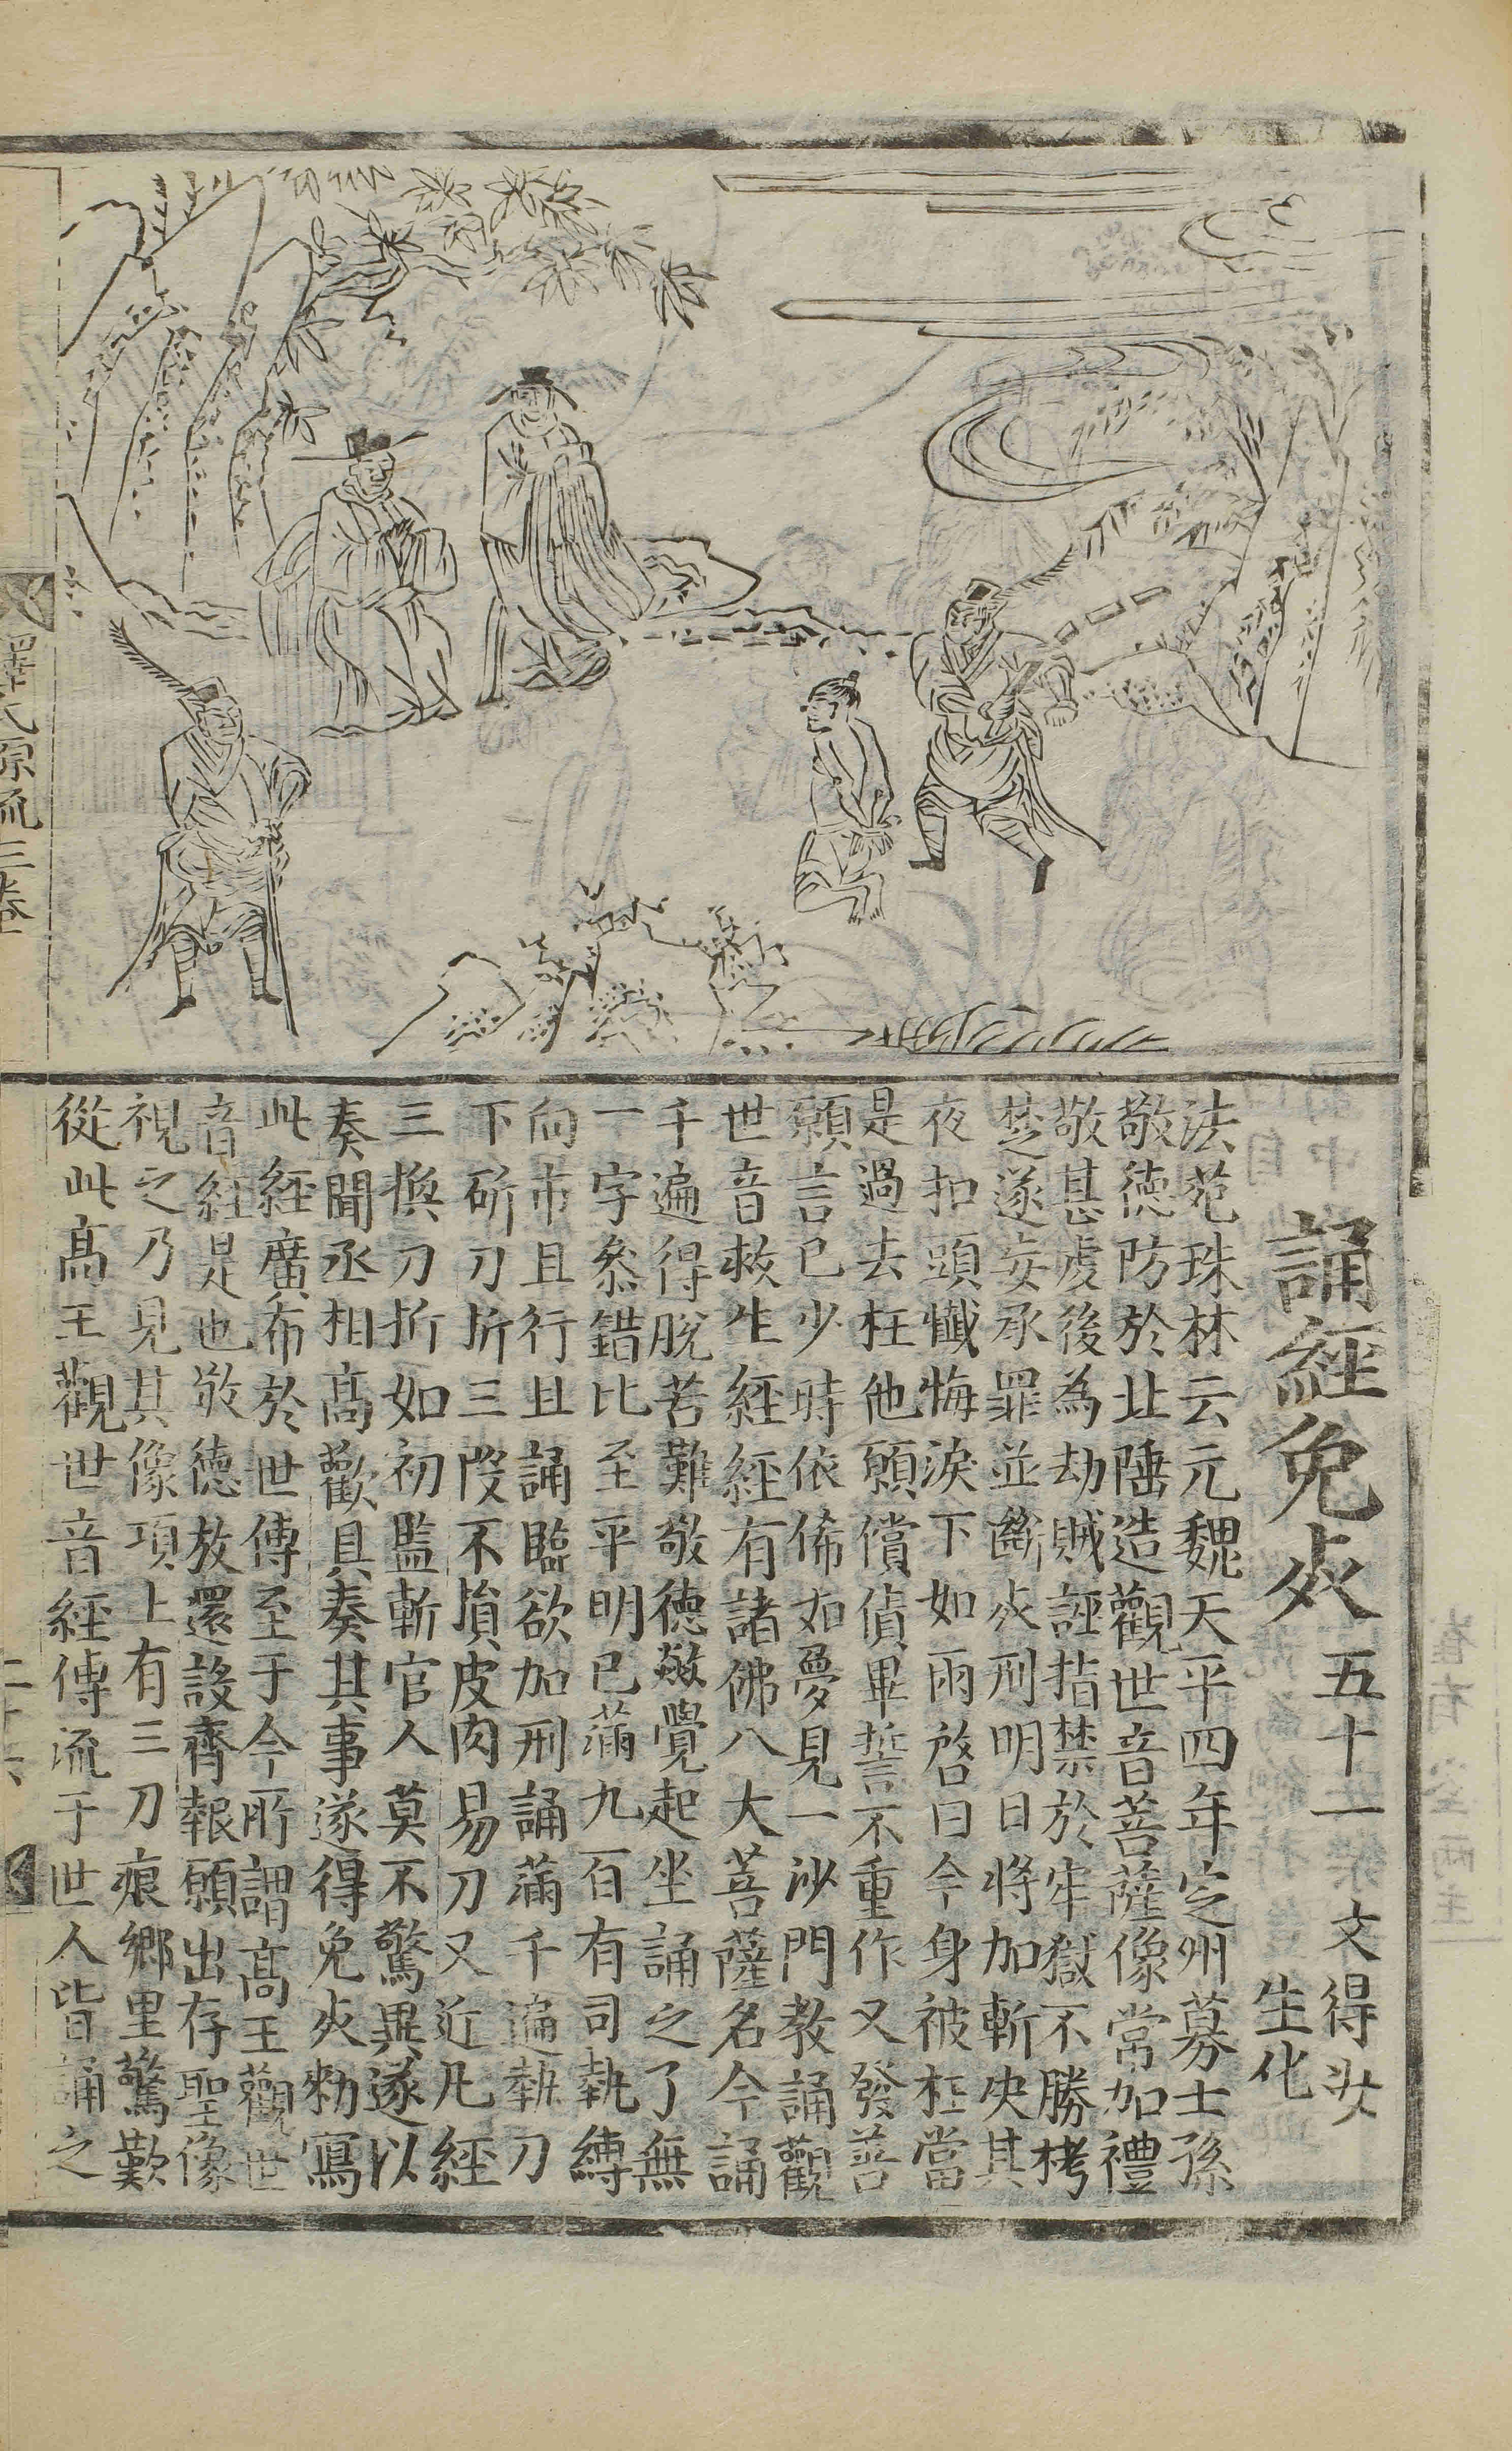 誦經免死 五十一
文得妝
生化
法苑珠林云元魏天平四年定州募士孫
敬德防於北陲造觀世音菩薩像常加禮
敬甚虔後為劫賊誣指禁於牢獄不勝拷
楚遂妄承罪並斷死刑明日將加斬決其
夜扣頭懺悔淚下如雨啓曰今身被枉當
是過去枉他願償債畢誓不重作又發善
願言已少時依俙如夢見一沙門教誦觀
世音救生經經有諸佛八大菩薩名令誦
千遍得脫苦難敬德欻覺起坐誦之了無
一字叅錯比至平明已滿九百有司執縛
向市且行且誦臨欲加刑誦滿千遍執刀
下斫刀折三段不損皮肉易刀又近凡經
三換刀折如初監斬官人莫不驚異遂以
奏聞丞相髙歡具奏其事遂得免死勑寫
此經廣布於世傳至于今所謂髙王觀世
音經是也敬德放還設齊報願出存聖像
視之乃見其像項上有三刀痕鄉里驚歎
從此髙王觀世音經傳流于世人皆誦之
釋氏源流三卷
二十六